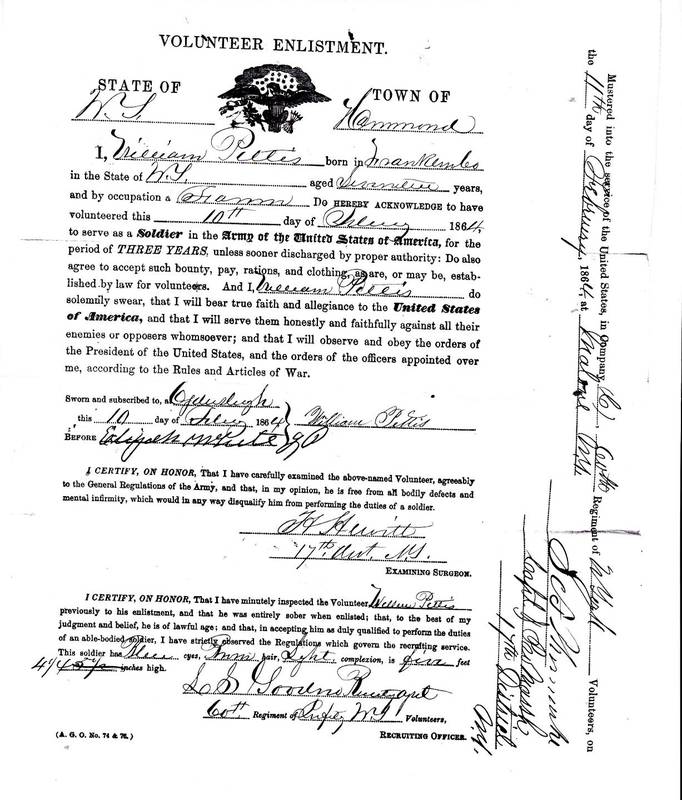 VOLUNTEER ENLISTMENT.
STATE OF TOWN OF
Hammond
I, William Pettis born in Franklin Co
in the State of aged years,
and by occupation a DO HEREBY ACKNOWLEDGE to have
volunteered this 10th day of 1864,
to serve as a Soldier in the Army of the United States of America, for the
period of THREE YEARS, unless sooner discharged by proper authority: Do also
agree to accept such bounty, pay, rations, and clothing, as are, or may be, estab-
lished by law for volunteers. And I, William Pettis do
solemnly swear, that I will bear true faith and allegiance to the United States
of America, and that I will serve them honestly and faithfully against all their
enemies or opposers whomsoever; and that I will observe and obey the orders of
the President of the United States, and the orders of the officers appointed over
me, according to the Rules and Articles of War.
Sworn and subscribed to, a
this 10 day of 1864 William Pettis
BEFORE
I CERTIFY, ON HONOR, That I have carefully examined the above-named Volunteer, agreeably
to the General Regulations of the Army, and that, in my opinion, he is free from all bodily defects and
mental infirmity, which would in any way disqualify him from performing the duties of a soldier.
H Hewitt
17th
EXAMINING SURGEON.
I CERTIFY, ON HONOR, That I have minutely inspected the Volunteer, William Pettis
previously to his enlistment, and that he was entirely sober when enlisted; that, to the best of my
judgment and belief, he is of lawful age; and that, in accepting him as duly qualified to perform the duties
of an able-bodied soldier, I have strictly observed the Regulations which govern the recruiting service.
This soldier has Blue eyes, hair, Light complexion, is five feet
inches high.
60th Regiment of Volunteers,
RECRUITING OFFICER.
(A. G. O. No. 74 & 76.)
Mustered into the service of the United States, in Company Regiment of Volunteers, on
the 11th day of February, 1864, at Malone
17th District